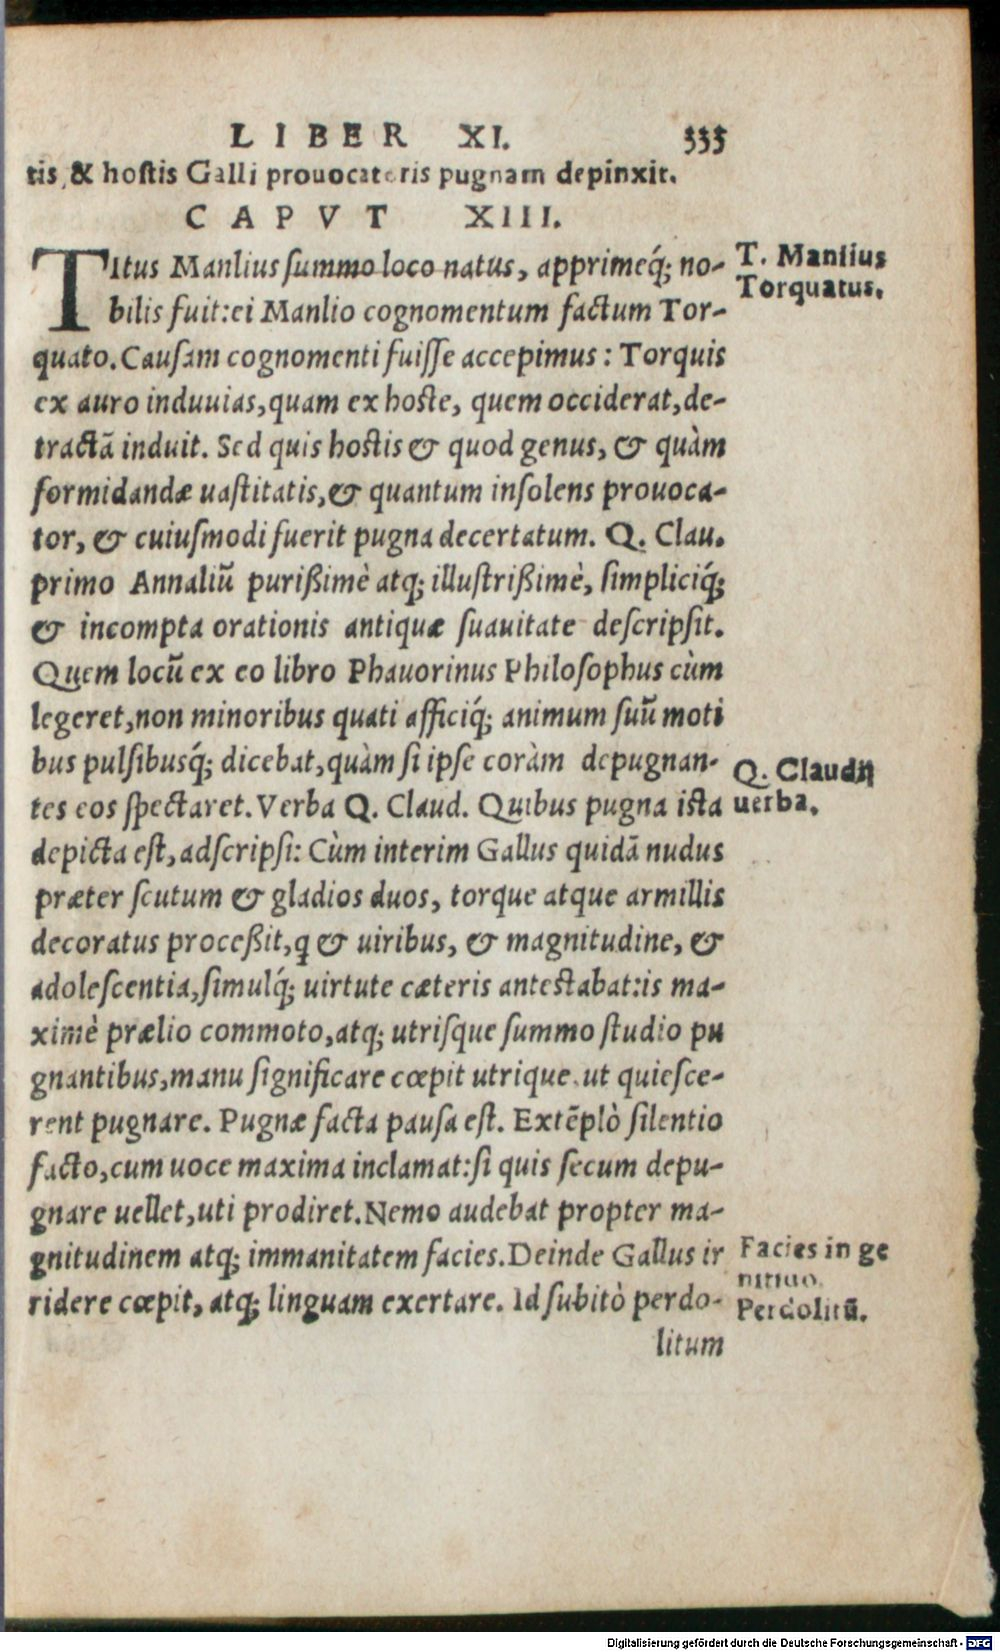 LIBER XI. 335
tis, & hoſtis Galli prouocatoris pugnam depinxit.
CAPVT XIII.
TItus Manlius ſummo loco natus, apprimeq́; no-
bilis fuit: ei Manlio cognomentum factum Tor-
quato. Cauſam cognomenti fuiſſe accepimus: Torquis
ex auro induuias, quam ex hoſte, quem occiderat, de-
tractã induit. Sed quis hoſtis & quod genus, & quàm
formidandæ uaſtitatis, & quantum inſolens prouoca-
tor, & cuiuſmodi fuerit pugna decertatum. Q. Clau.
primo Annaliũ purißimè atq; illuſtrißimè, ſimpliciq́;
& incompta orationis antiquæ ſuauitate deſcripſit.
Quem locũ ex eo libro Phauorinus Philoſophus cùm
legeret, non minoribus quati afficiq́; animum ſuũ moti
bus pulſibusq́; dicebat, quàm ſi ipſe coràm depugnan-
tes eos ſpectaret. Verba Q. Claud. Quibus pugna iſta
depicta eſt, adſcripſi: Cùm interim Gallus quidã nudus
præter ſcutum & gladios duos, torque atque armillis
decoratus proceßit, q & uiribus, & magnitudine, &
adoleſcentia, ſimulq́; uirtute cæteris anteſtabat: is ma-
ximè prælio commoto, atq; utriſque ſummo ſtudio pu
gnantibus, manu ſignificare cœpit utrique, ut quieſce-
rent pugnare. Pugnæ facta pauſa eſt. Extẽplò ſilentio
facto, cum uoce maxima inclamat: ſi quis ſecum depu-
gnare uellet, uti prodiret. Nemo audebat propter ma-
gnitudinem atq; immanitatem facies. Deinde Gallus ir
ridere cœpit, atq; linguam exertare. Id ſubitò perdo-
litum
T. Manlius
Torquatus.
Q. Claudij
uerba.
Facies in ge
nitiuo.
Perdolitũ.
Digitalisierung gefördert durch die Deutsche Forschungsgemeinschaft - DFG